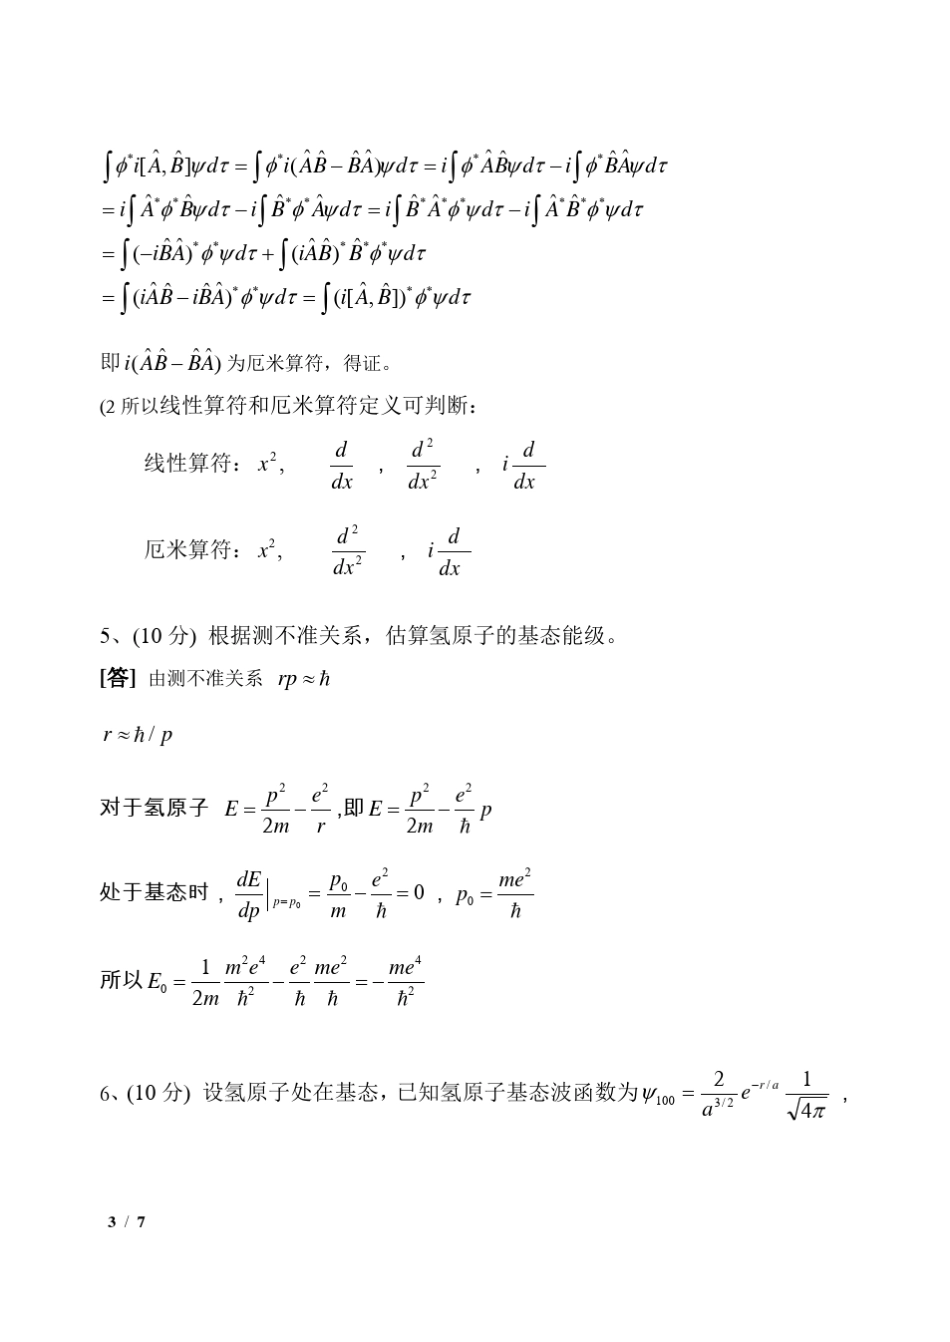 ∫φ*i[Â, B̂]ψdτ = ∫φ*i(ÂB̂ − B̂Â)ψdτ = i∫φ*ÂB̂ψdτ − i∫φ*B̂Âψdτ
= i∫Â*φ*B̂ψdτ − i∫B̂*φ*Âψdτ = i∫B̂*Â*φ*ψdτ − i∫Â*B̂*φ*ψdτ
= ∫(−iB̂Â)*φ*ψdτ + ∫(iÂB̂)*B̂*φ*ψdτ
= ∫(iÂB̂ − iB̂Â)*φ*ψdτ = ∫(i[Â, B̂])*φ*ψdτ
即 i(ÂB̂ − B̂Â) 为厄米算符，得证。
(2 所以线性算符和厄米算符定义可判断：
线性算符： x², d/dx , d²/dx² , i d/dx
厄米算符： x², d²/dx² , i d/dx
5、(10 分) 根据测不准关系，估算氢原子的基态能级。
[答] 由测不准关系 rp ≈ ħ
r ≈ ħ / p
对于氢原子 E = p²/2m − e²/r ,即 E = p²/2m − e²/ħ p
处于基态时 , dE/dp |p=p₀ = p₀/m − e²/ħ = 0 , p₀ = me²/ħ
所以 E₀ = 1/2m m²e⁴/ħ² − e²/ħ me²/ħ = − me⁴/ħ²
6、(10 分) 设氢原子处在基态，已知氢原子基态波函数为 ψ₁₀₀ = 2/a^{3/2} e^{−r/a} 1/√4π ,
3 / 7